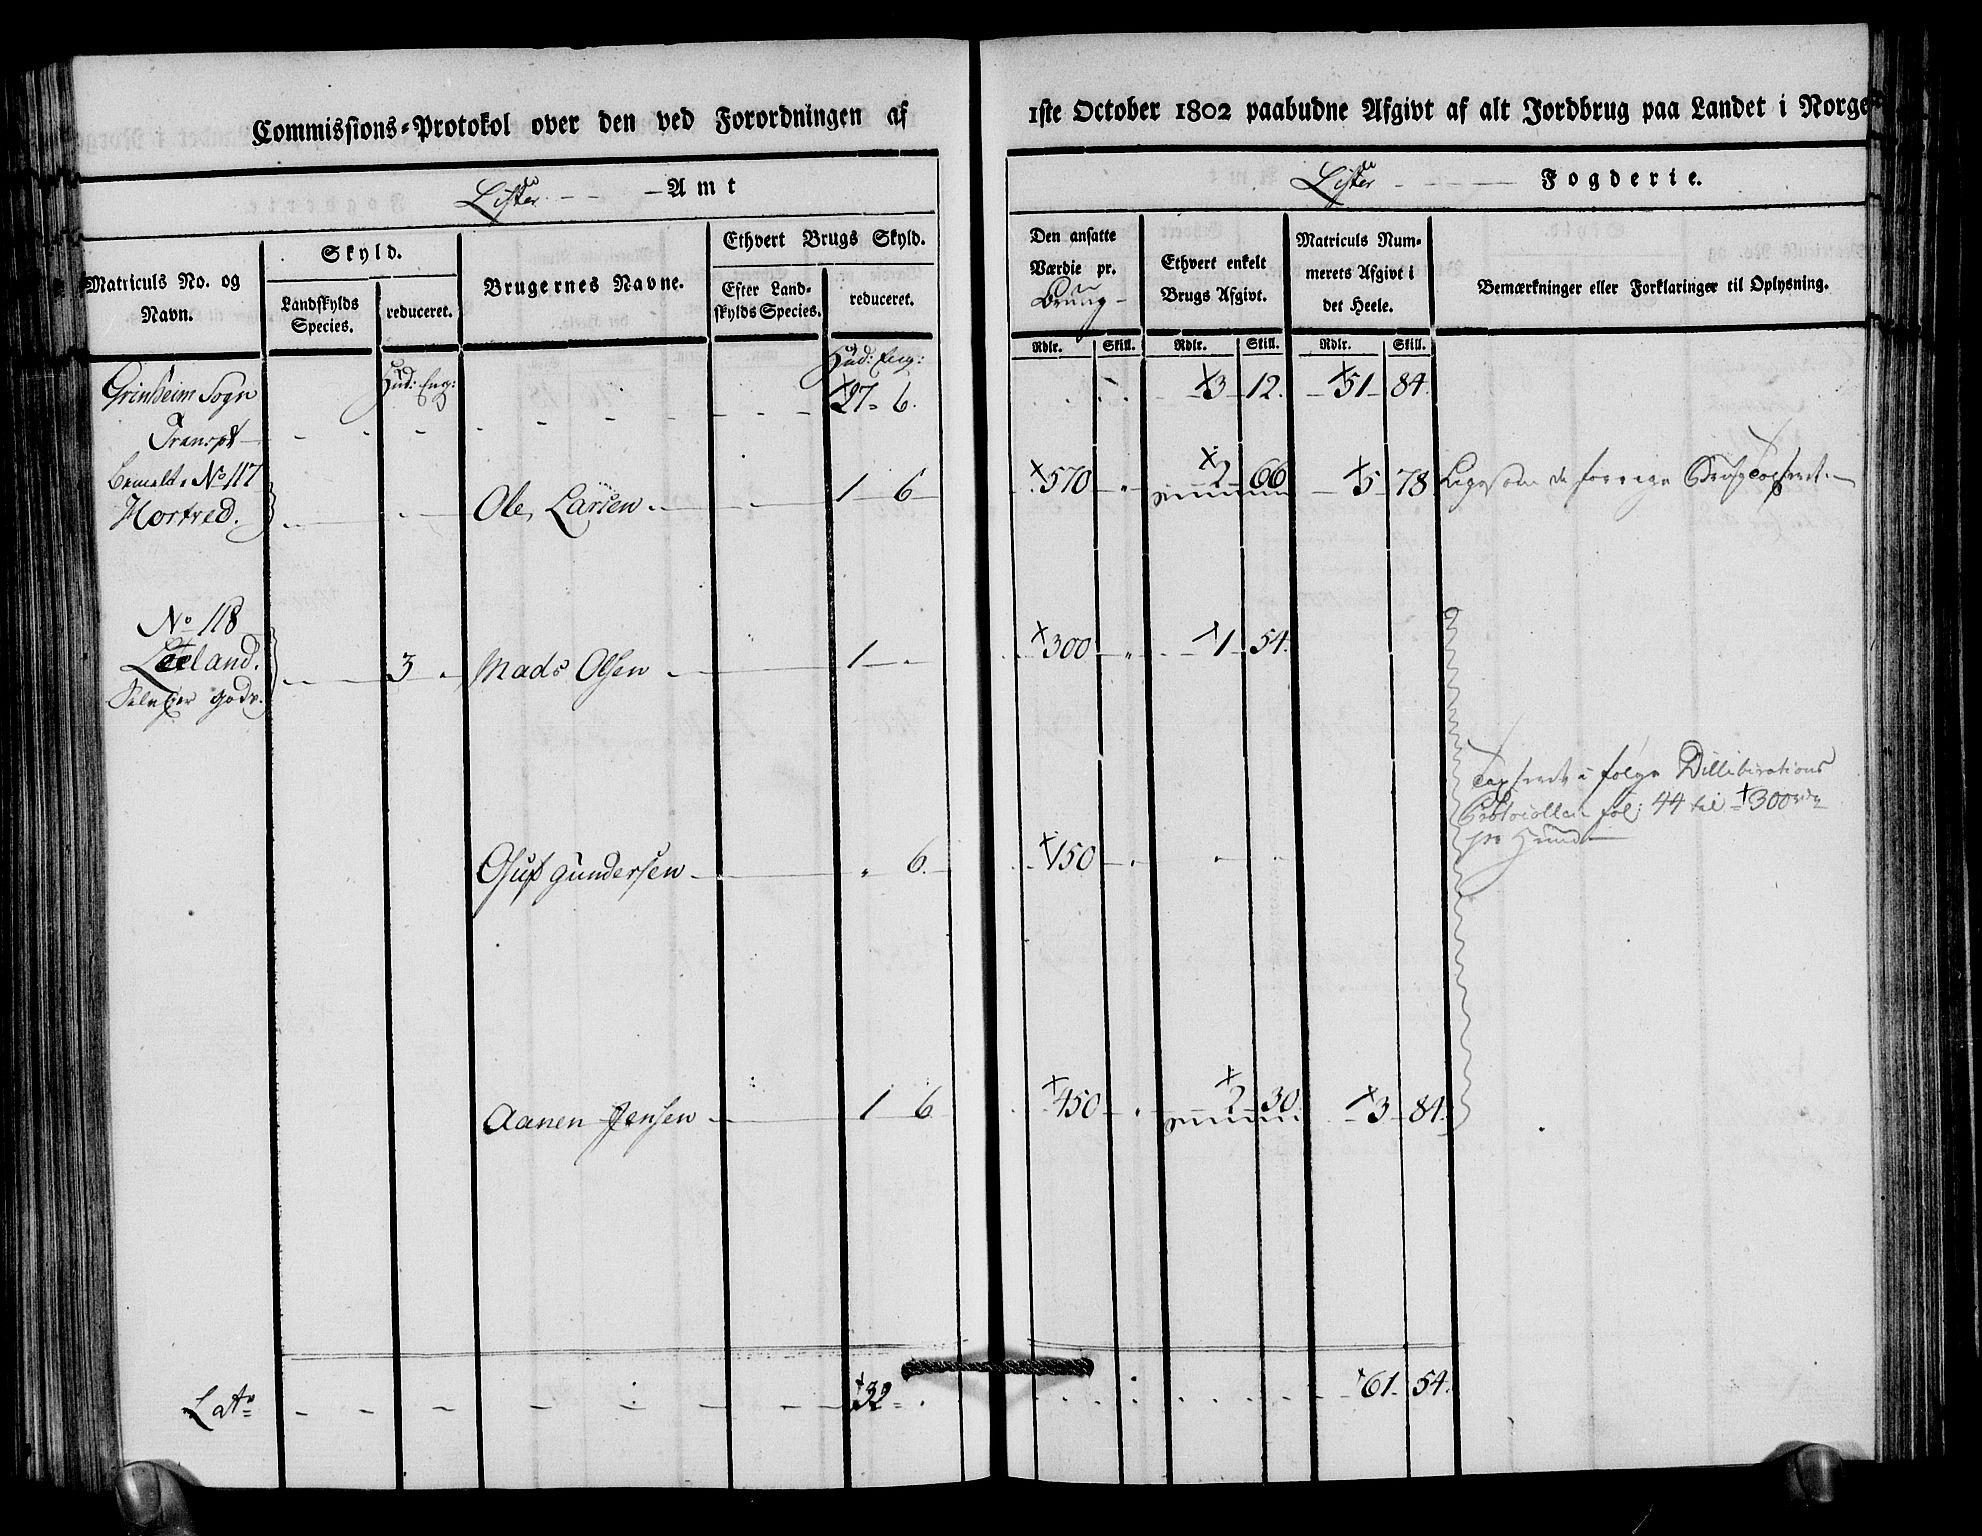 Commissions-Protokol over den ved Forordningen af 1ste October 1802 paabudne Afgivt af alt Jordbrug paa Landet i Norge
Lister Amt
Lister Fogderie.
Matriculs No. og Navn.
Skyld.
Landskylds Species.
reduceret.
Brugernes Navne.
Ethvert Brugs Skyld.
Efter Landskylds Species.
reduceret.
Den ansatte Værdie pr. Brug
Ethvert enkelt Brugs Afgivt.
Matriculs Nummerets Afgivt i det Heele.
Bemærkninger eller Forklaringer til Oplysning.
Rdlr. Skill. Rdlr. Skill. Rdlr. Skill.
Hud: Eng: Hud: Eng:
Grindheim Sogn
Transpt 27 6. 3 12. 51 84.
Bemelte No 117
Hortred. Ole Larsen 1 6 570 2 66 5 78 Ligesom de forrige Brug taxeret.
No 118
Leeland. 3 Mads Olsen 1 300 1 54.
Selveyer gods.
Taxeret i følge Dilliberations
Protocollen fol: 44 til 300 rdr
pr Huud
Oluf Gundersen 6. 150
Aanen Jensen 1 6 450 2 30. 3 84.
Lats 32 61 54.